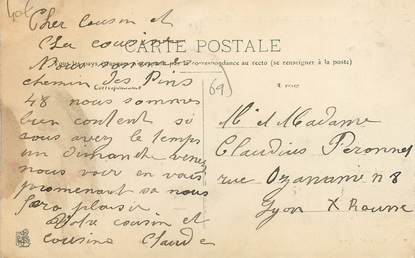 Cher cousin et
Cher cousine
CARTE POSTALE
nous sommes
correspondance au recto (se renseigner à la poste)
chemin des Pins
Correspondance
48 nous sommes
bien content si
vous avez le temps
un dimanche venez
nous voir en vous
promenant sa nous
fera plaisir
Votre cousin et
cousine Claude
69
Mr et Madame
Claudius Peronnet
rue Ozanam n 8
Lyon X Rousse